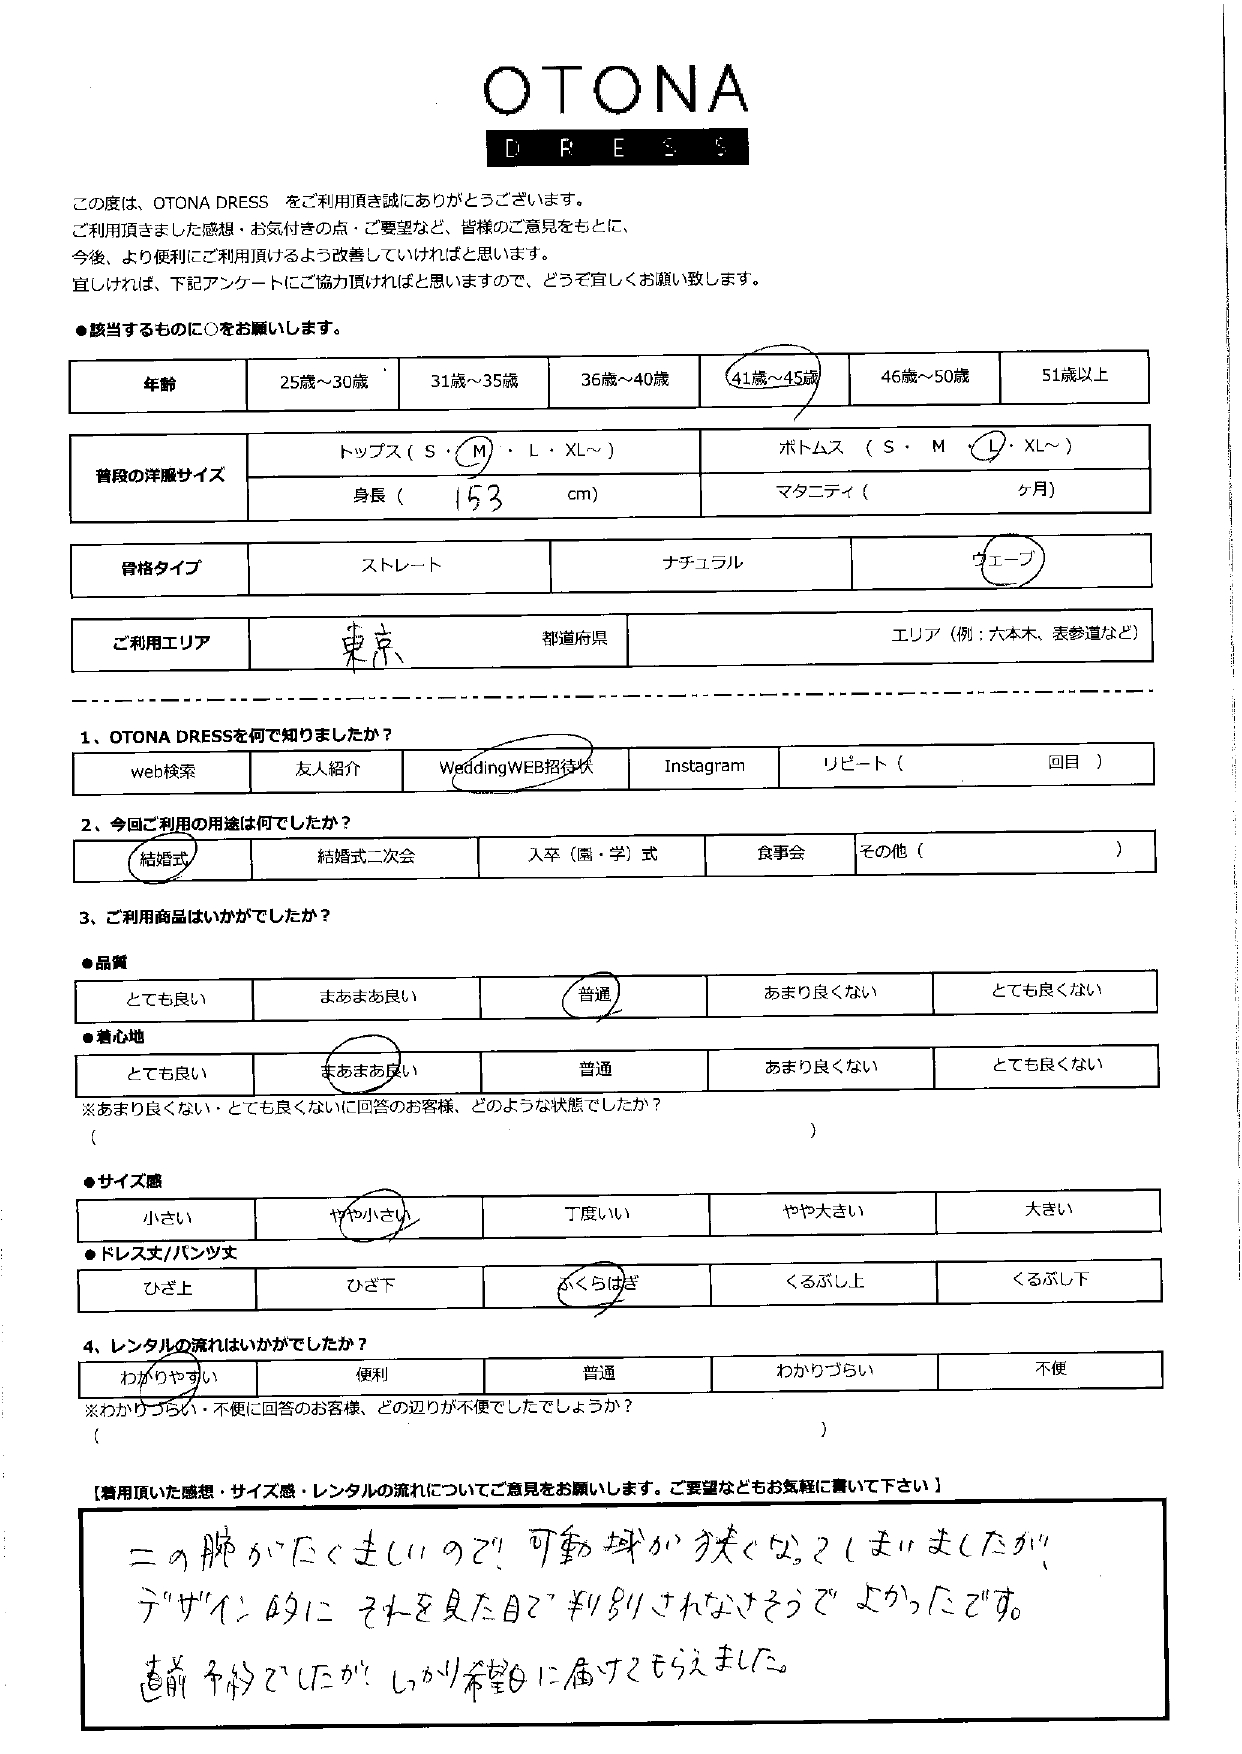 OTONA
DRESS
この度は、OTONA DRESS をご利用頂き誠にありがとうございます。
ご利用頂きました感想・お気付きの点・ご要望など、皆様のご意見をもとに、
今後、より便利にご利用頂けるよう改善していければと思います。
宜しければ、下記アンケートにご協力頂ければと思いますので、どうぞ宜しくお願い致します。
●該当するものに○をお願いします。
年齢 25歳～30歳 31歳～35歳 36歳～40歳 41歳～45歳 46歳～50歳 51歳以上
普段の洋服サイズ トップス ( S ・ M ・ L ・ XL～ ) ボトムス ( S ・ M ・ L ・ XL～ )
身長 ( 153 cm) マタニティ ( ケ月)
骨格タイプ ストレート ナチュラル ウェーブ
ご利用エリア 東京 都道府県 エリア（例：六本木、表参道など）
1、OTONA DRESSを何で知りましたか？
web検索 友人紹介 WeddingWEB招待状 Instagram リピート ( 回目 )
2、今回ご利用の用途は何でしたか？
結婚式 結婚式二次会 入卒（園・学）式 食事会 その他 ( )
3、ご利用商品はいかがでしたか？
●品質
とても良い まあまあ良い 普通 あまり良くない とても良くない
●着心地
とても良い まあまあ良い 普通 あまり良くない とても良くない
※あまり良くない・とても良くないに回答のお客様、どのような状態でしたか？
( )
●サイズ感
小さい やや小さい 丁度いい やや大きい 大きい
●ドレス丈/パンツ丈
ひざ上 ひざ下 ふくらはぎ くるぶし上 くるぶし下
4、レンタルの流れはいかがでしたか？
わかりやすい 便利 普通 わかりづらい 不便
※わかりづらい・不便に回答のお客様、どの辺りが不便でしたでしょうか？
( )
【着用頂いた感想・サイズ感・レンタルの流れについてご意見をお願いします。ご要望などもお気軽に書いて下さい】
二の腕がたくましいので、可動域が狭くなってしまいましたが、
デザイン的に それを見た目で判別されなさそうで よかったです。
直前予約でしたが、しっかり希望日に届けてもらえました。